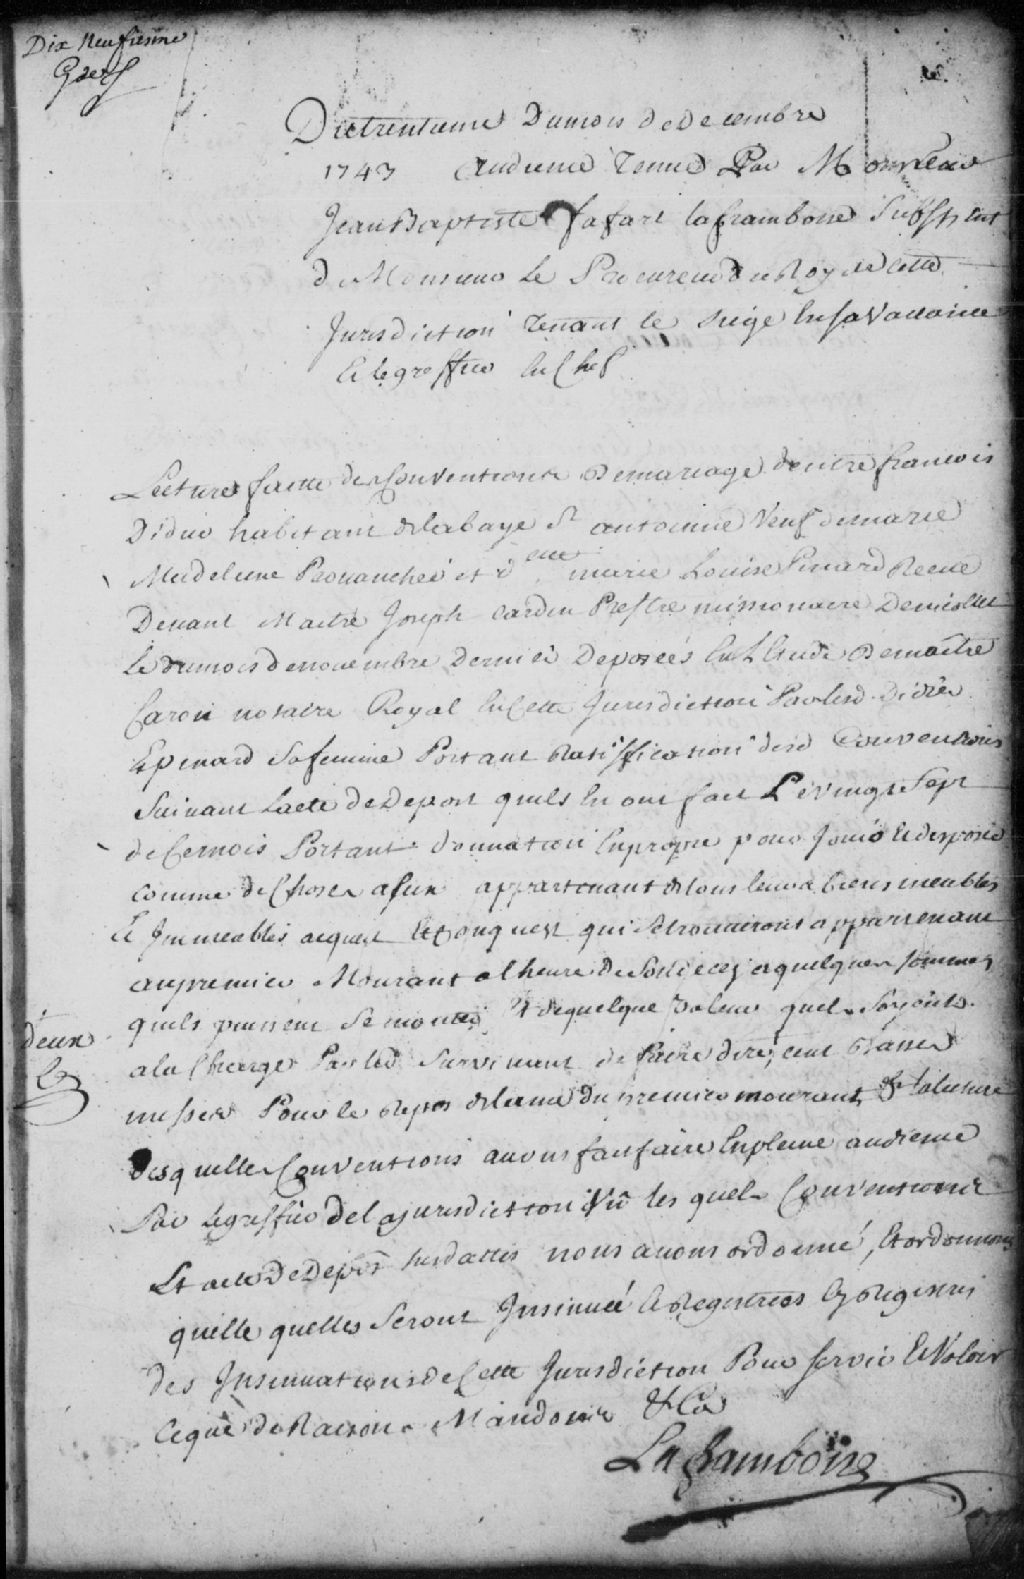 Dix Neufiesme
Du trentieme Dumois de Decembre
1743 audience Tenue Par Monsieur
Jean Baptiste fafart laframboise Substitut
de Monsieur Le Procureur du Roy de cette
Jurisdiction Tenant le Siege En sa Vaccance
Et le greffier En Chef
Lecture faitte des Conventions De mariage dentre francois
Didier habitant de la baye St antoinne Veuf de marie
Madeleine Prouanché et delle marie Louise Pinard Receue
Devant Maitre Joseph Cardin Prestre missionaire De nicollet
Le du mois de novembre Dernier Deposées En L'Etude De maitre
Caron notaire Royal En Cette Jurisdiction Par lesd Didier
Et pinard Sa femme Portant Ratiffication desd Conventions
Suivant L'acte de Depost quils En ont fait Le vingt Sept
de Ce mois Portant donnation En propre pour Jouir Et disposer
comme de Chose a Eux appartenant de tous leurs biens meubles
Et Immeubles acquest Et Conquest qui Se trouveront appartenant
au premier Mourant a l'heure de Son deces a quelques Sommes
quils puissent Se monter & de quelque Valeur quels Soyent
deux
a la Charge Par led Survivant de faire dire cent basses
messes Pour le repos de lame du premier mourant & lecture
Desquelles Conventions avons fait faire En pleine audience
Par le greffier de la Jurisdiction Vû les quels Conventions
Et acte De Depost susdattés nous avons ordonné, Et ordonnons
quelle quelles Seront Insinuée Et Registrées Es Registres
des Insinuations de Cette Jurisdiction Pour servir Et Valoir
Ceque de Raison Mandons &ca
Laframboise